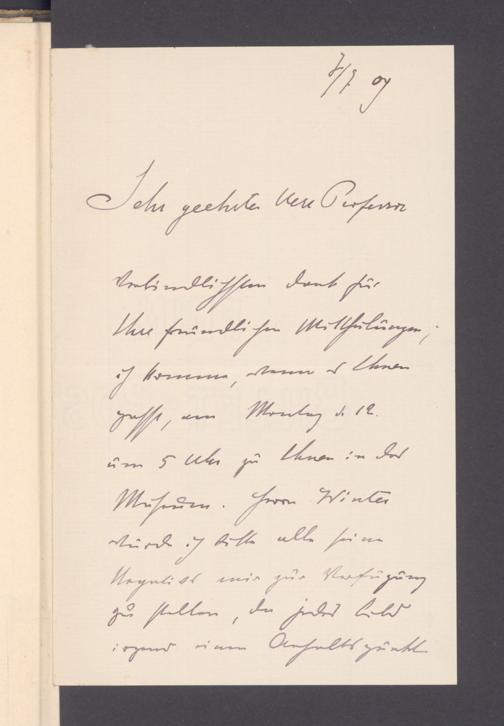 7/9 09
Sehr geehrter Herr Professor
Verbindlichsten Dank für
Ihre freundlichen Mittheilungen;
ich komme, wenn es Ihnen
passt, am Montag d. 12.
um 5 Uhr zu Ihnen in das
Museum. Herrn Winter
würde ich bitte alle seine
Negative mir zur Verfügung
zu stellen, da jedes Bild
irgend einen Anhaltspunkt